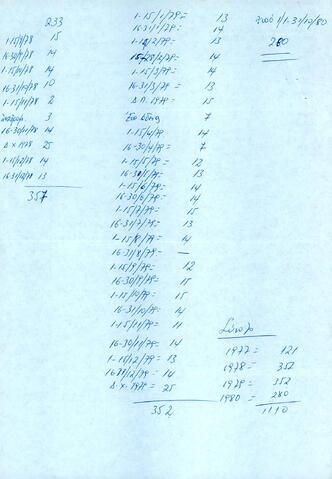 233
1-15/9/78 15
16-30/9/78 14
1-15/10/78 14
16-31/10/78 10
1-15/11/78 2
3
16-30/11/78 14
Δ.Χ. 1978 25
1-15/12/78 14
16-31/12/78 13
357
1-15/1/79= 13
16-31/1/79= 14
1-15/2/79= 13
14
1-15/3/79= 14
16-31/3/79= 13
Δ.Π. 1979= 15
7
1-15/4/79= 14
16-30/4/79= 7
1-15/5/79= 12
16-30/5/79= 13
1-15/6/79= 14
16-30/6/79= 14
1-15/7/79= 15
16-31/7/79= 13
1-15/8/79= 14
16-31/8/79= —
1-15/9/79= 12
16-30/9/79= 15
1-15/10/79= 15
16-31/10/79= 14
1-15/11/79= 11
16-30/11/79= 14
1-15/12/79= 13
16-31/12/79= 14
Δ.Χ. 1979= 25
352
1/1-31/12/80
280
Σύνολο
1977= 121
1978= 357
1979= 352
1980= 280
1110